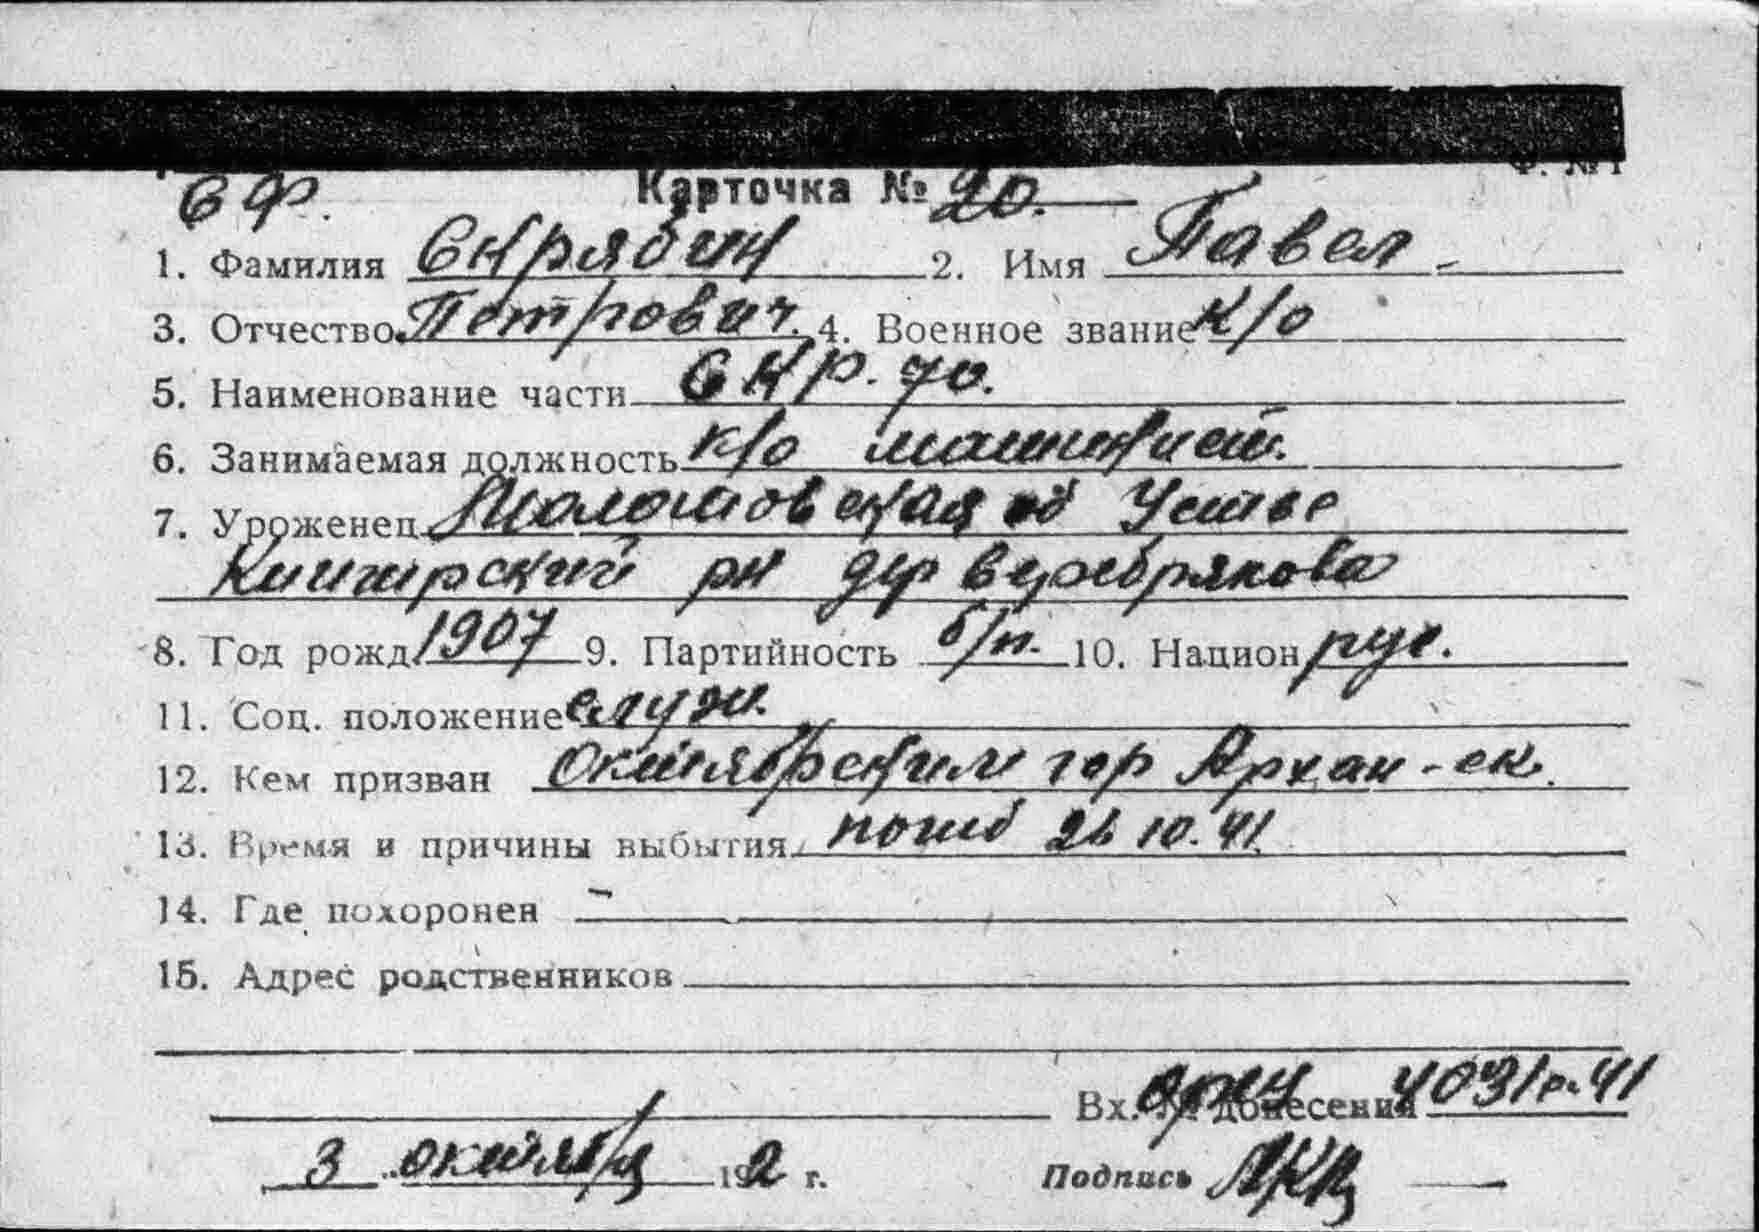 Ф. № 1
СФ. Карточка № 20.
1. Фамилия Скрябин 2. Имя Павел
3. Отчество Петрович. 4. Военное звание к/о
5. Наименование части СКР. 70.
6. Занимаемая должность к/о машинист.
7. Уроженец Молотовская об Устье
Кишерский рн дер
8. Год рожд. 1907 9. Партийность б/п. 10. Национ рус.
11. Соц. положение служ.
12. Кем призван Октябрским гор Архан-ск.
13. Время и причины выбытия погиб 26 10. 41
14. Где похоронен –
15. Адрес родственников
Вх. № донесения
3 октября 192 г. Подпись